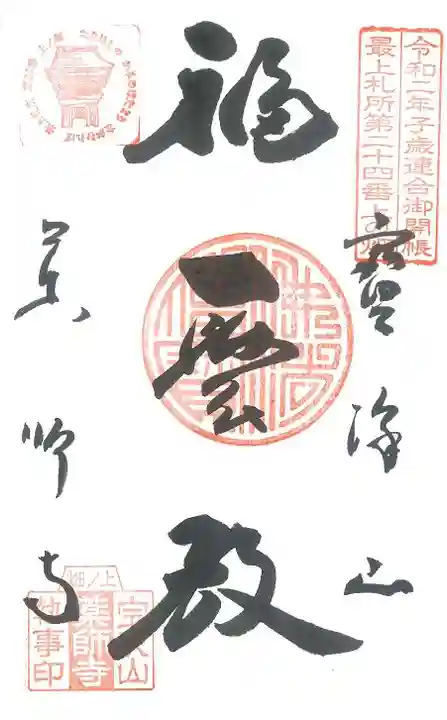 令和二年子歳連合御開帳
最上札所第二十四番上ノ畑
寶澤山
福雲殿
薬師寺
上ノ畑
宝沢山
薬師寺
執事印